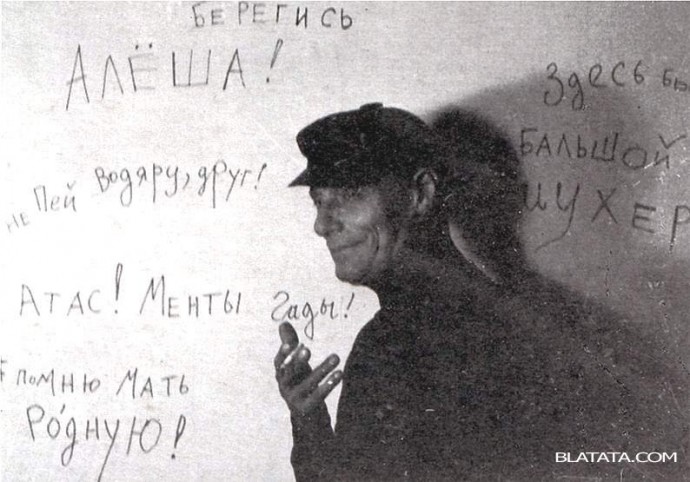 БЕРЕГИСЬ
АЛЁША!
Здесь бы
БАЛЬШОЙ
ШУХЕР
НЕ Пей Водяру, друг!
АТАС! МЕНТЫ гады!
Помню МАТЬ
РО́ДНУЮ!
BLATATA.COM